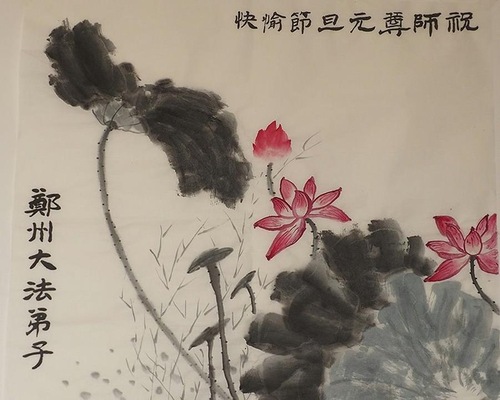 祝師尊元旦節愉快
鄭州大法弟子